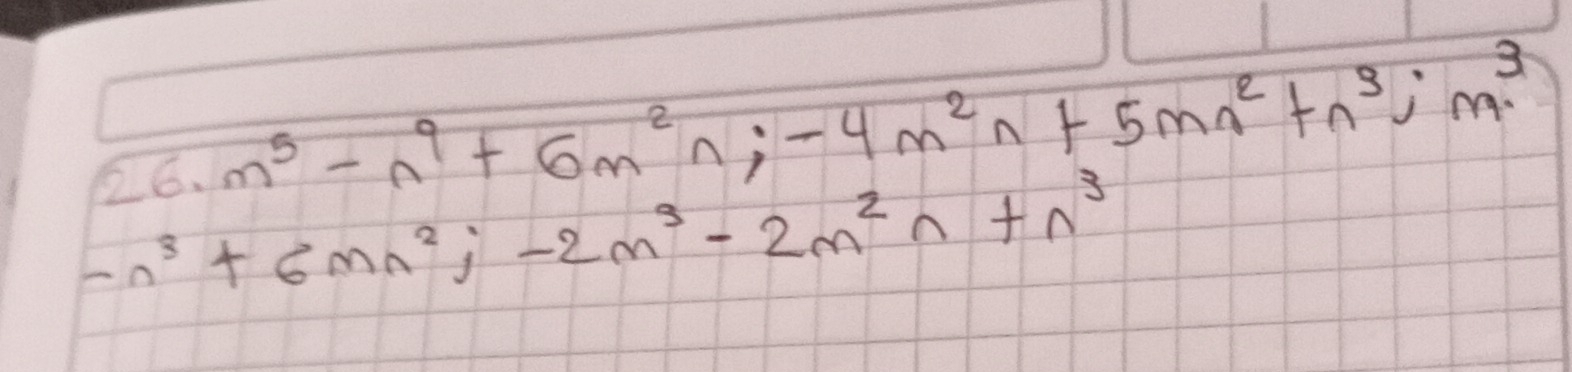 26. m⁵ - n⁹ + 6m²n; -4m²n + 5mn² + n³; m³
-n³ + 6mn²; -2m³ - 2m²n + n³